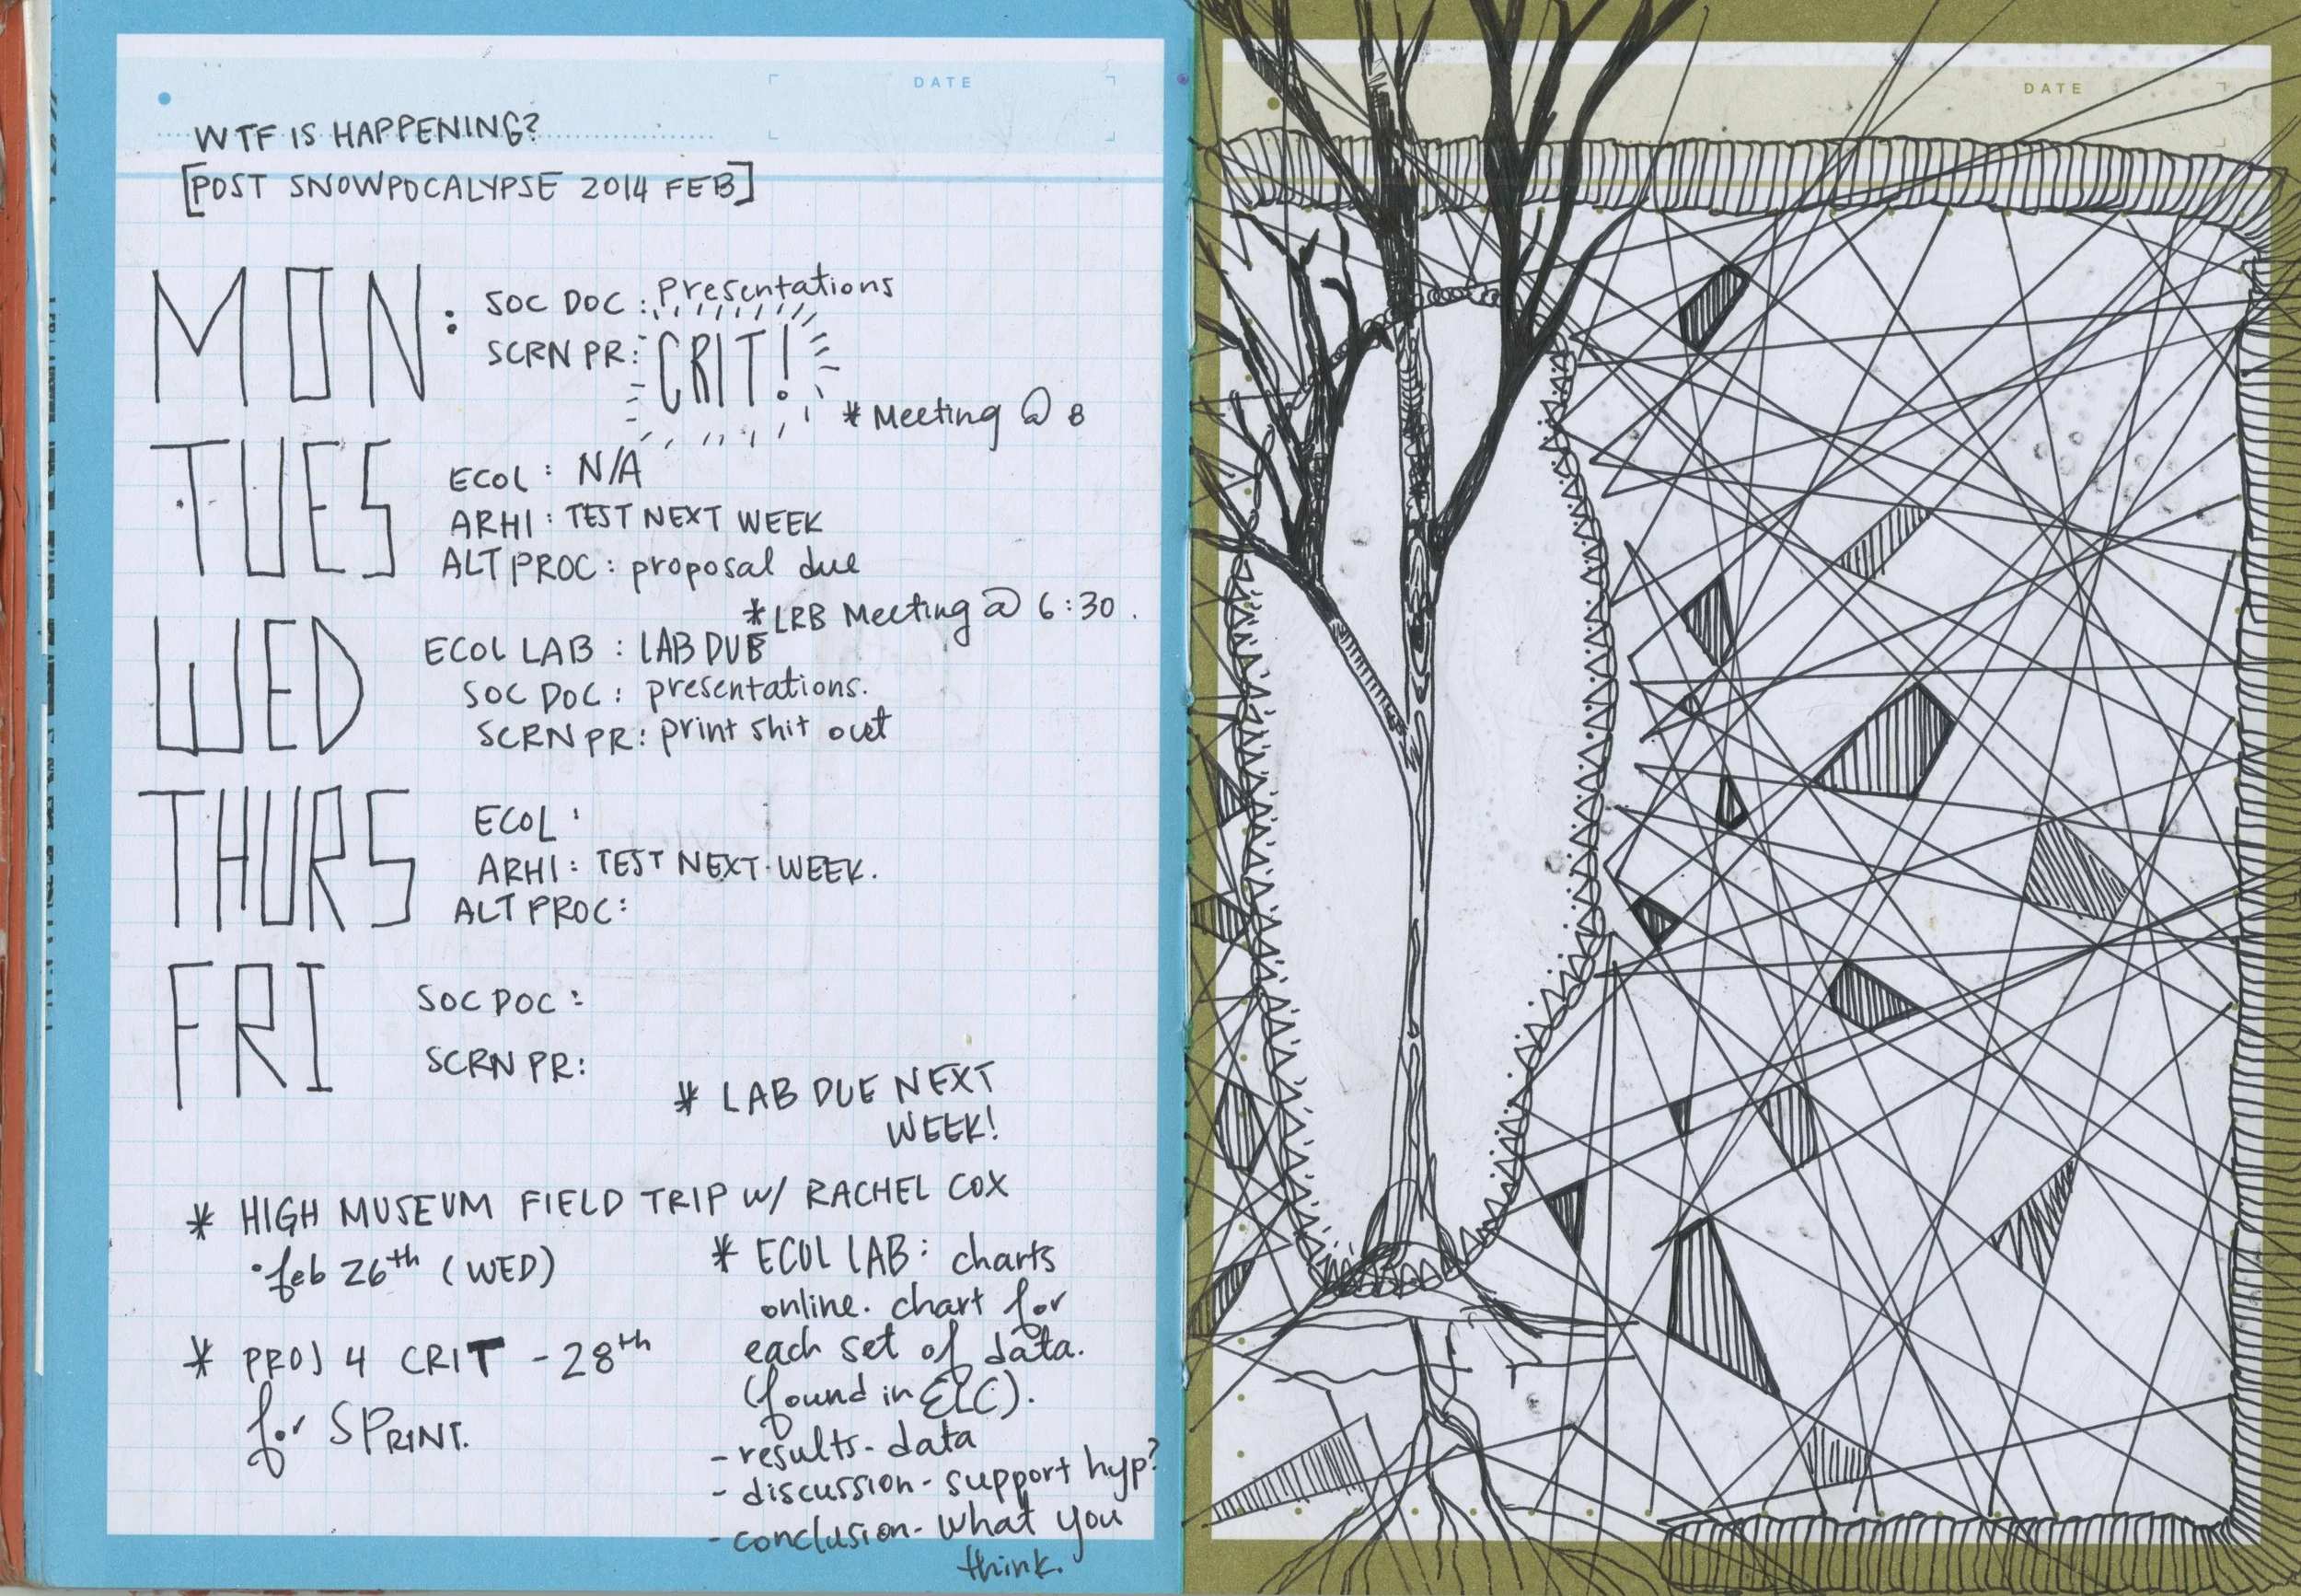 DATE
WTF IS HAPPENING?
[POST SNOWPOCALYPSE 2014 FEB]
MON: SOC DOC: presentations
SCRN PR: CRIT!
* Meeting @ 8
TUES ECOL: N/A
ARHI: TEST NEXT WEEK
ALT PROC: proposal due
* LRB Meeting @ 6:30.
WED ECOL LAB: LAB DUE
SOC DOC: presentations.
SCRN PR: print shit out
THURS ECOL:
ARHI: TEST NEXT WEEK.
ALT PROC:
FRI SOC DOC:
SCRN PR:
* LAB DUE NEXT
WEEK!
* HIGH MUSEUM FIELD TRIP W/ RACHEL COX
• feb 26th (WED)
* PROJ 4 CRIT - 28th
for SPRINT.
* ECOL LAB: charts
online. chart for
each set of data.
(found in ELC).
- results - data
- discussion - support hyp?
- conclusion - what you
think.
DATE